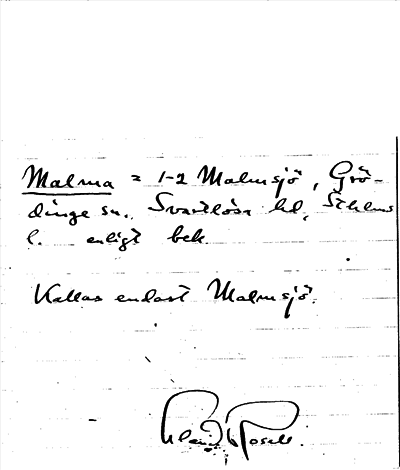 Malma = 1-2 Malmsjö, Grö-
dinge sn. Svartlösa hd, Sthlms
l. enligt bek.
Kallas endast Malmsjö.